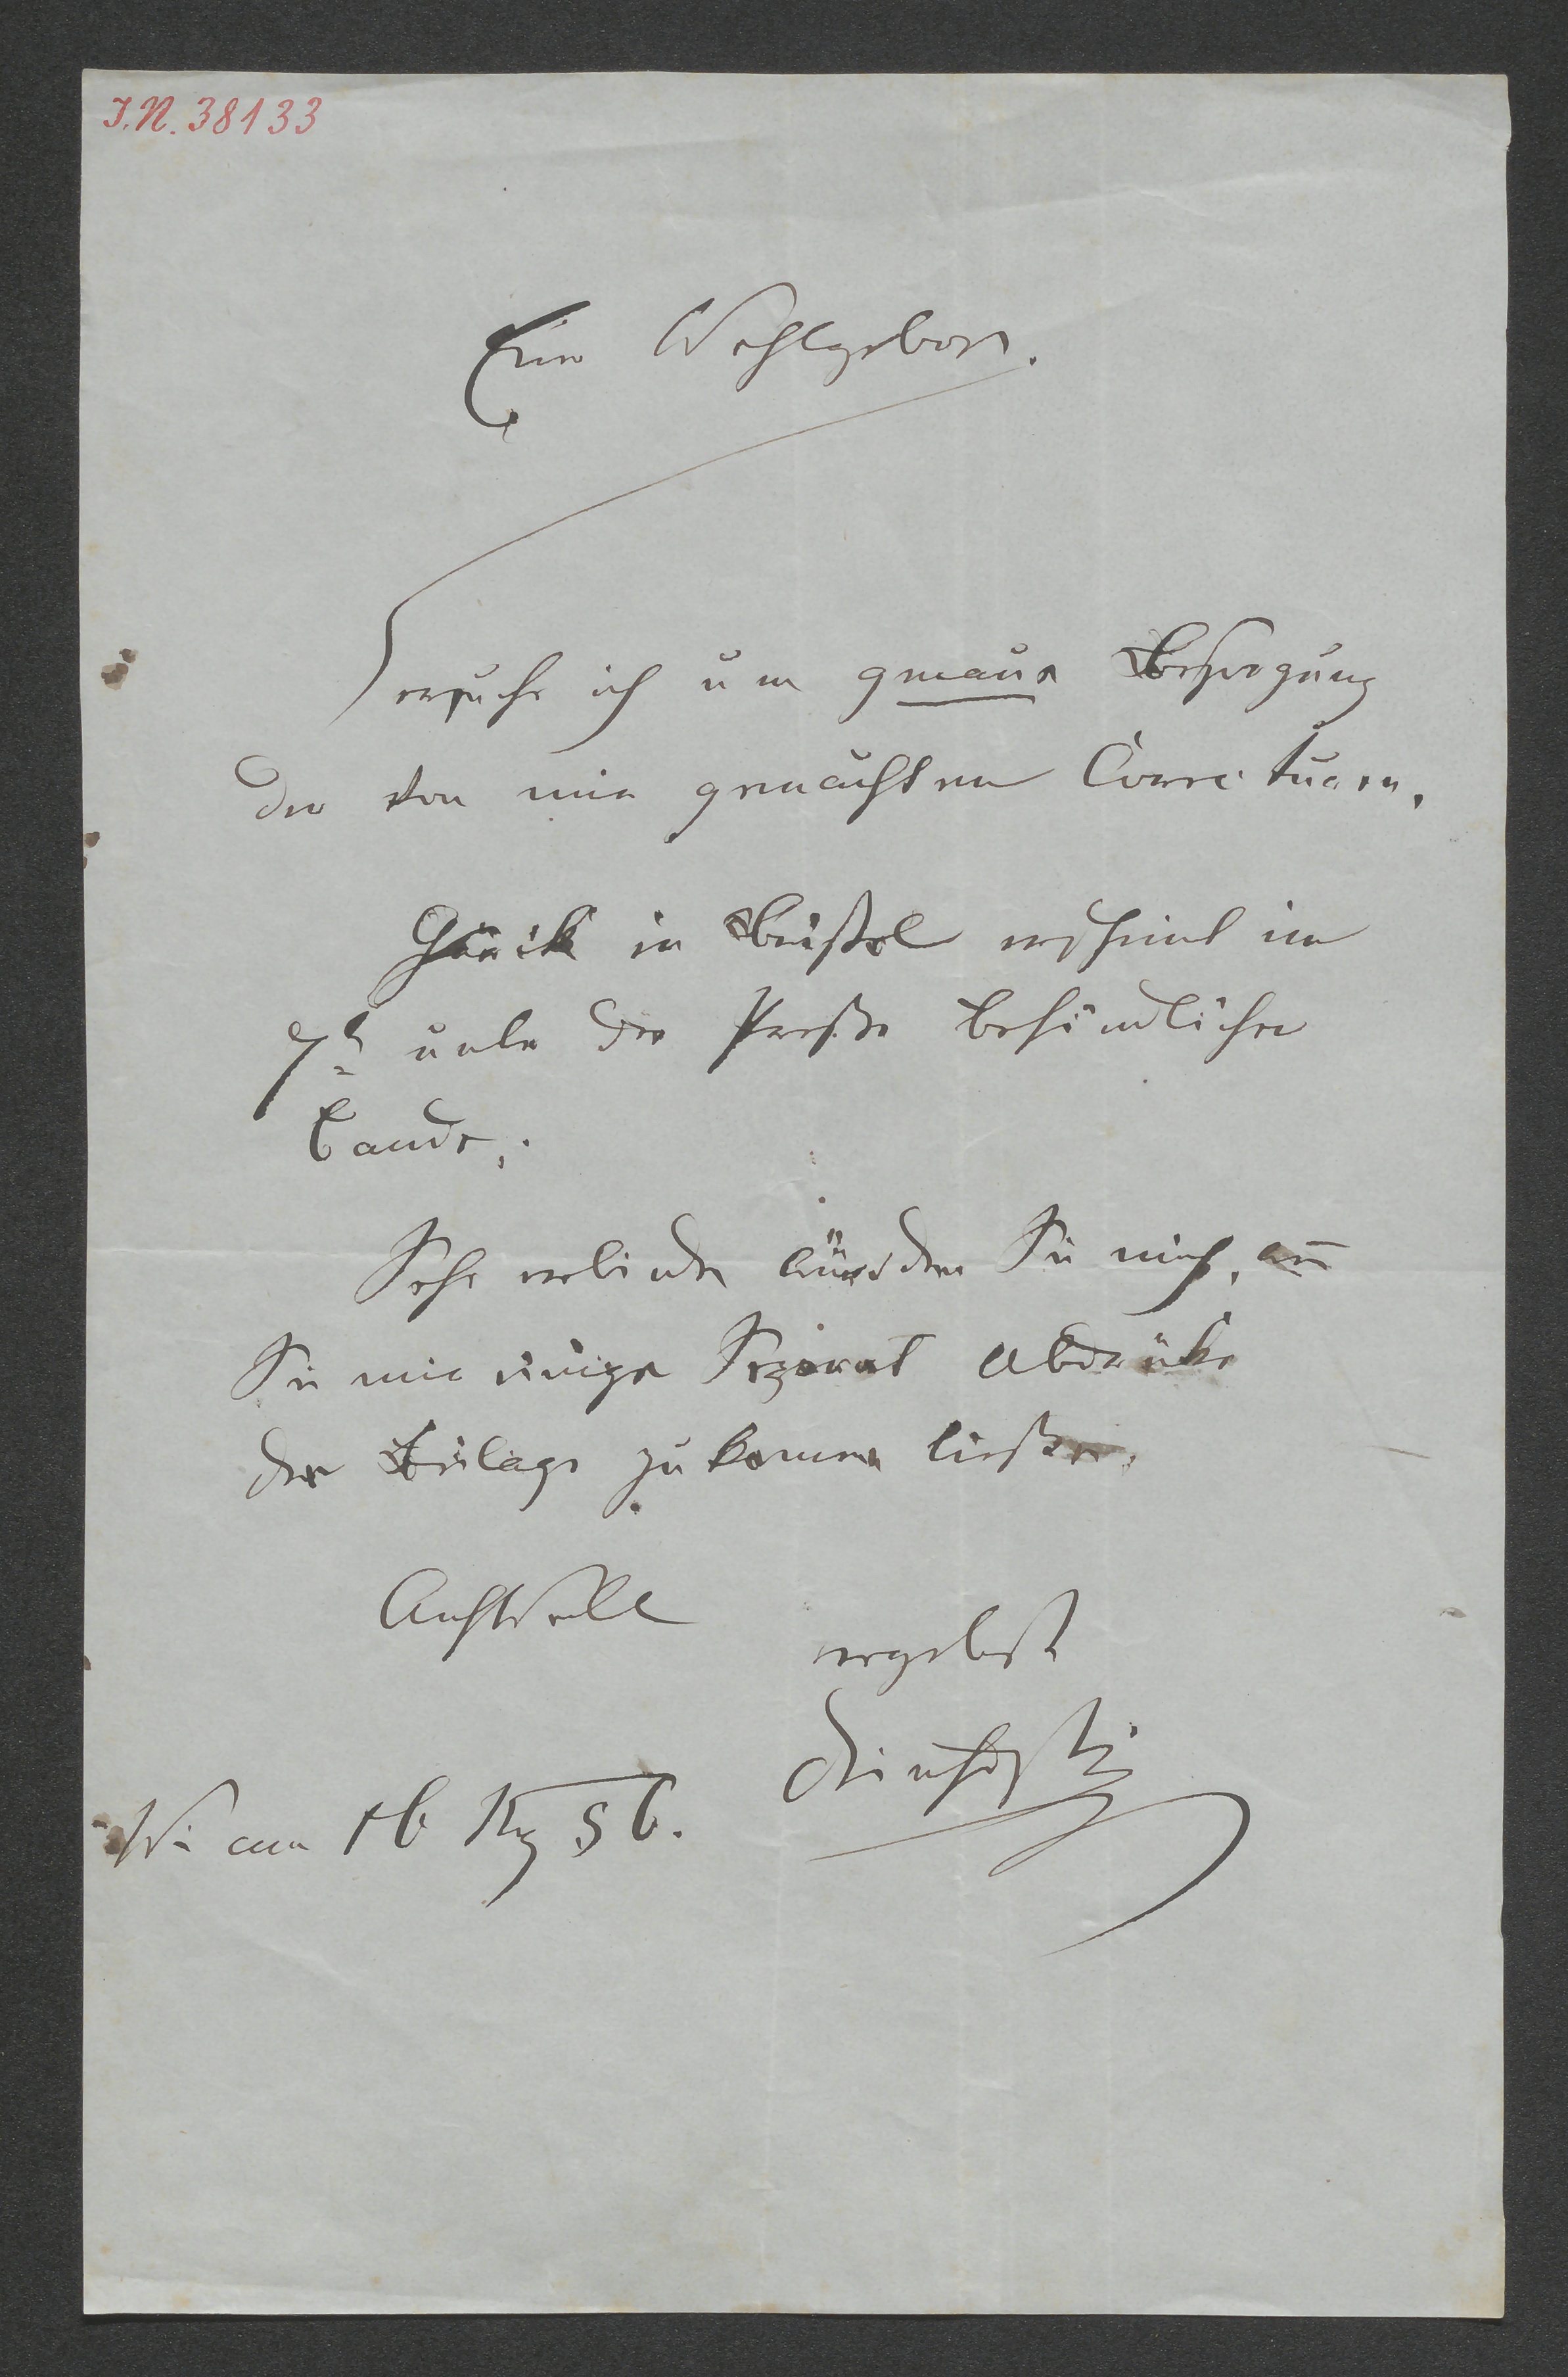 I.N. 38133
Euer Wohlgeborn.
ersuche ich um genaue Besorgung
der von mir gemachten Correcturen.
in erscheint im
7t unter der Presse befindlichen
Bande.
Sehr verbinden würden Sie mich, wenn
Sie mir einige Separat Abdrücke
der Beilage zukommen ließen.
Achtvoll
ergebenst
Wi am 16 56.